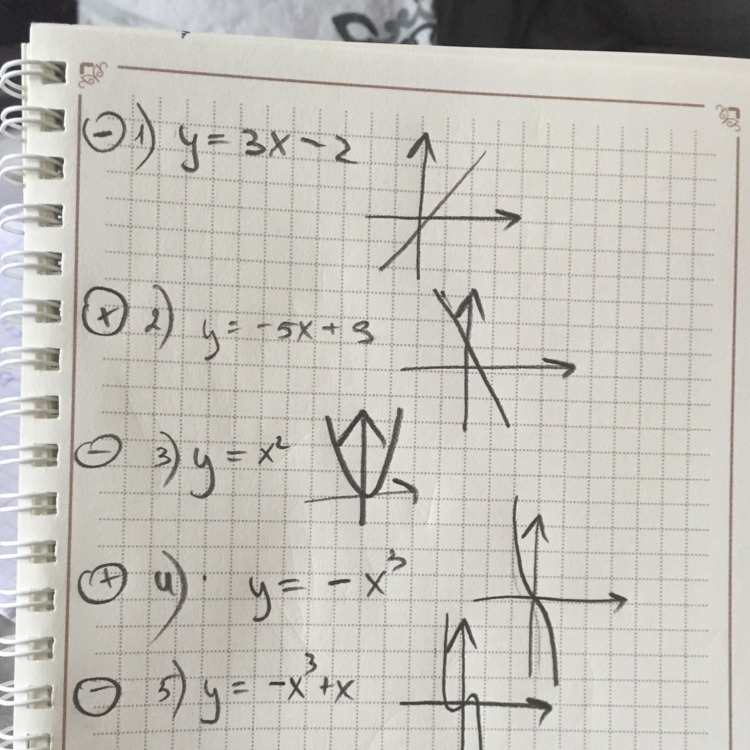 ⊖ 1) y = 3x - 2
⊕ 2) y = -5x + 3
⊖ 3) y = x²
⊕ 4) y = -x³
⊖ 5) y = -x³+x